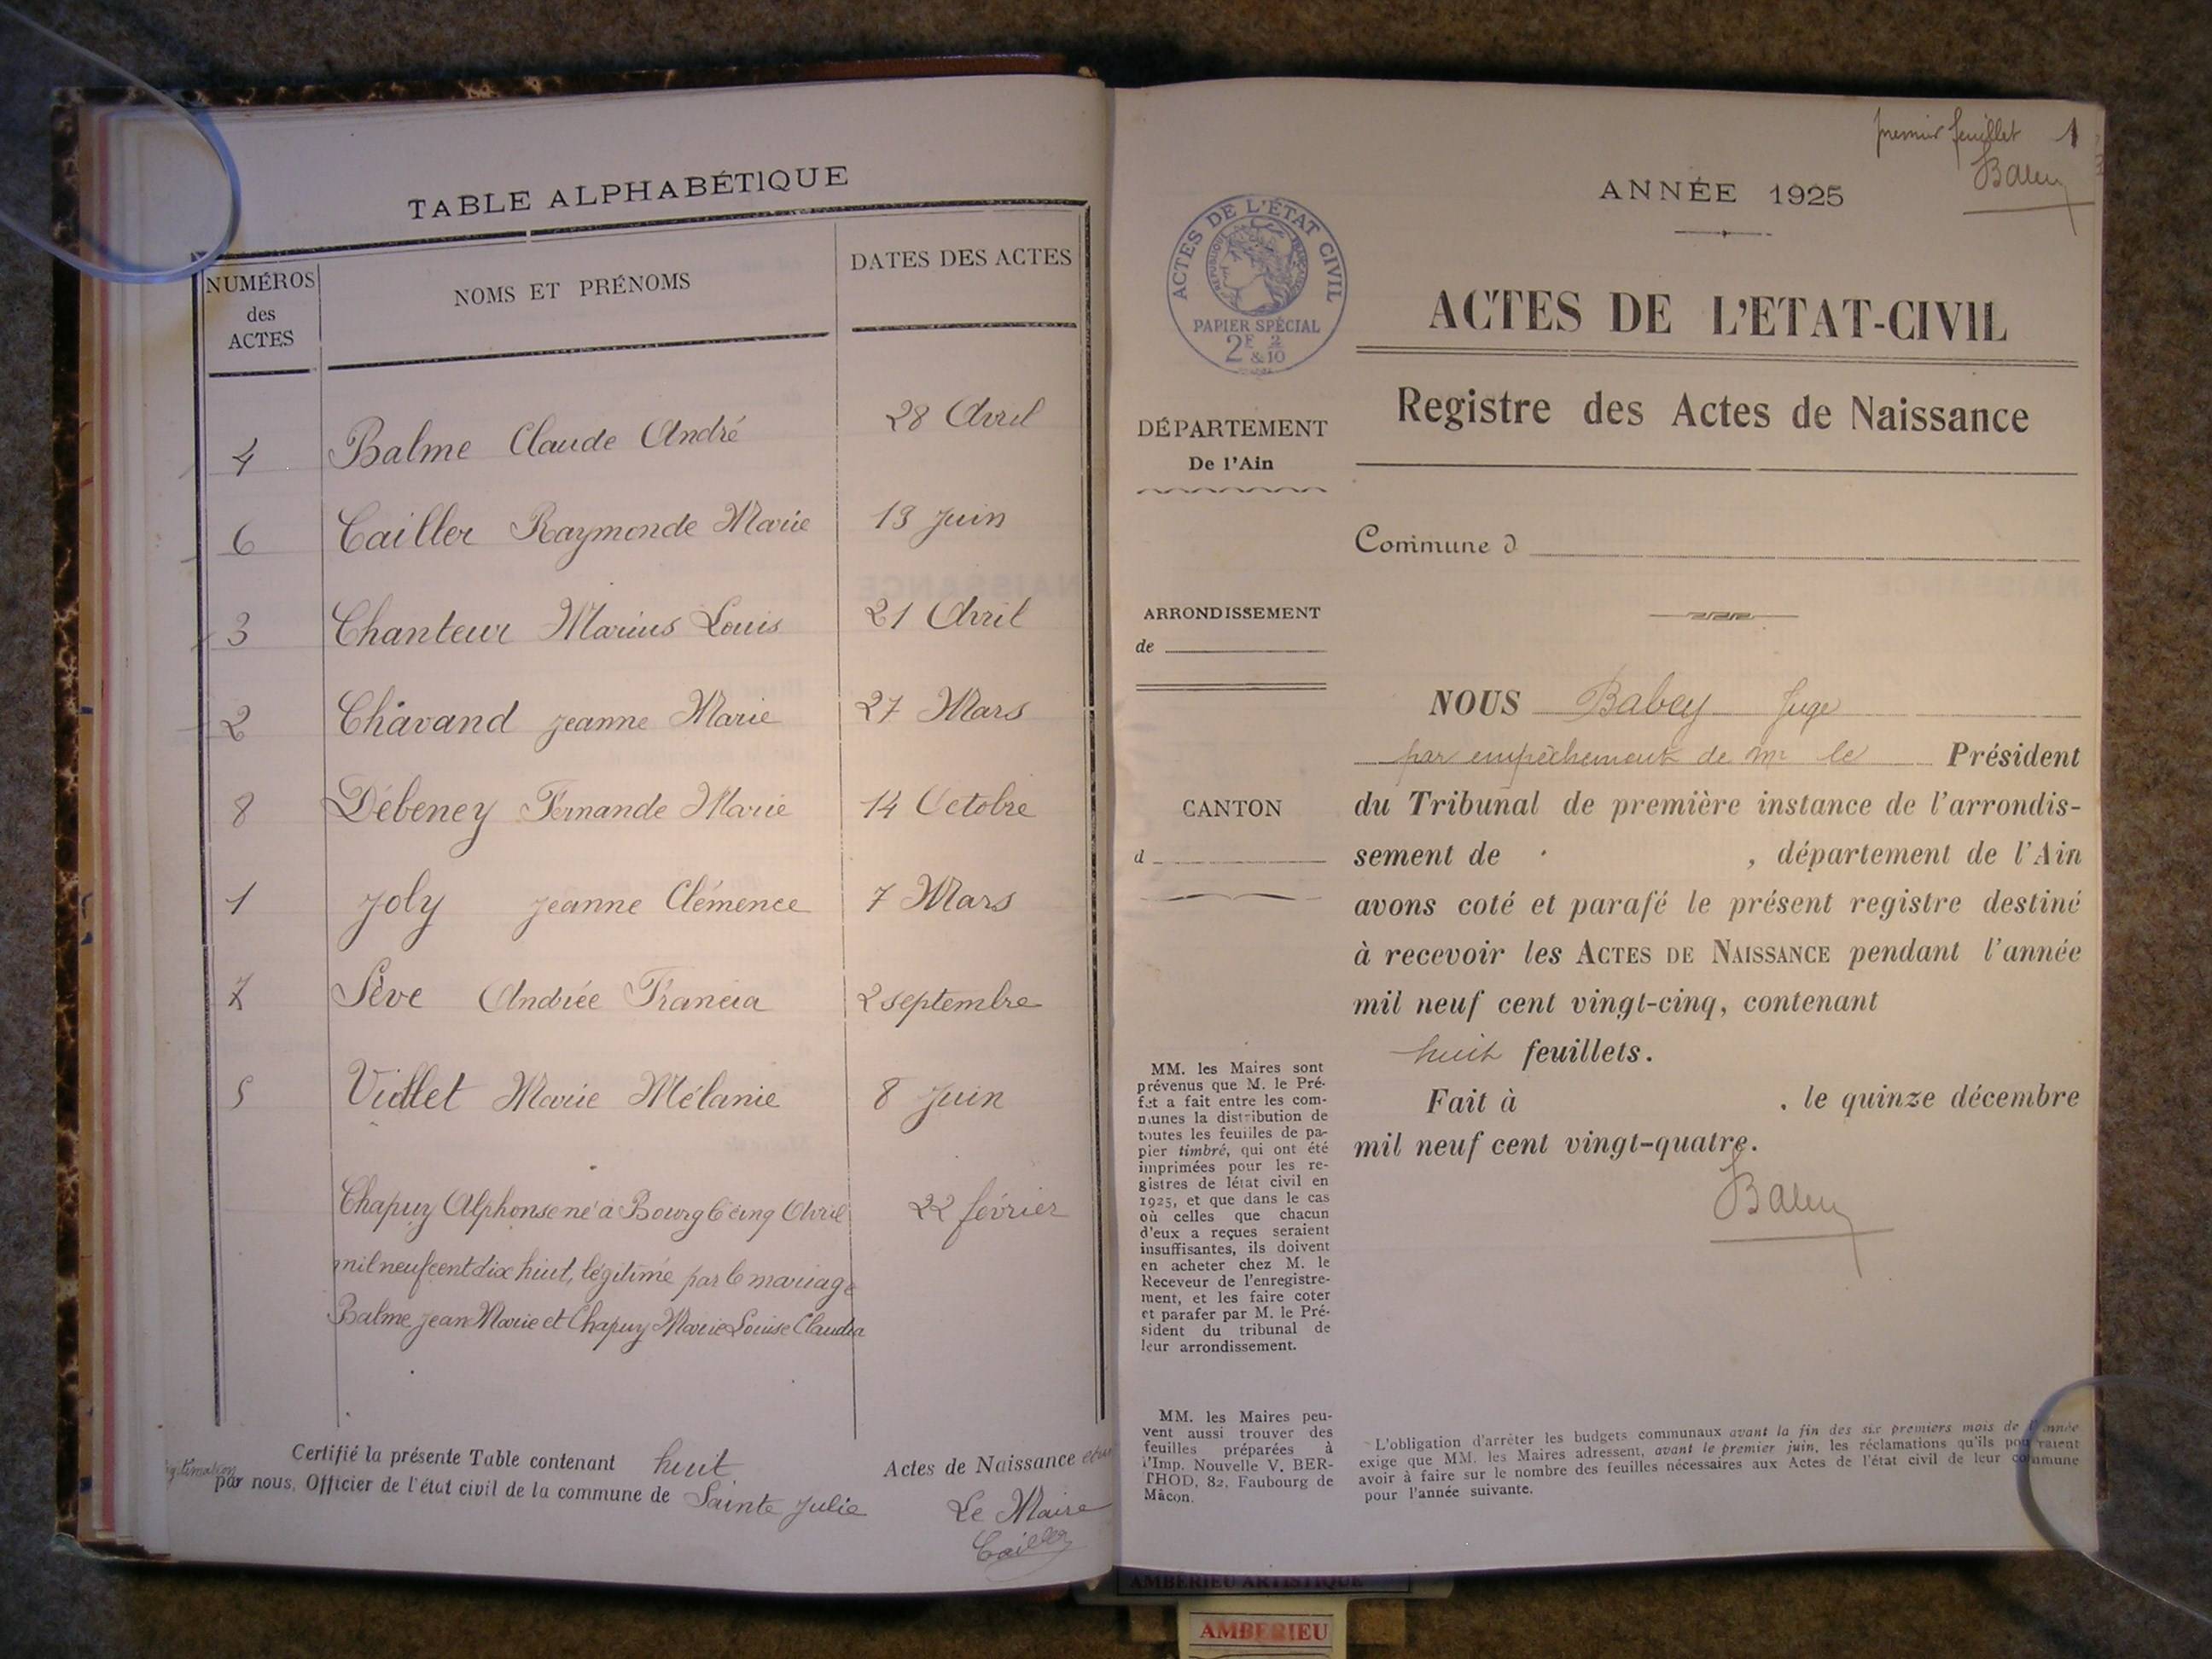 TABLE ALPHABÉTIQUE
NUMÉROS
des
ACTES
NOMS ET PRÉNOMS
DATES DES ACTES
4 Balme Claude André 28 Avril
6 Cailler Raymonde Marie 13 Juin
3 Chanteur Marius Louis 21 Avril
2 Chavand Jeanne Marie 27 Mars
8 Débeney Fernande Marie 14 Octobre
1 Joly Jeanne Clémence 7 Mars
7 Sève Andrée Francia 2 septembre
5 Viallet Marie Mélanie 8 Juin
Chapuy Alphonse né à Bourg le cinq Avril 22 février
mil neuf cent dix huit, légitimé par le mariage
Balme Jean Marie et Chapuy Marie Louise Claudia
Certifié la présente Table contenant huit Actes de Naissance
par nous, Officier de l'état civil de la commune de Sainte Julie
Le Maire
Cailler
premier feuillet 1
Babey
ANNÉE 1925
ACTES DE L'ÉTAT CIVIL
RÉPUBLIQUE FRANÇAISE
PAPIER SPÉCIAL
2F 2
&10
ACTES DE L'ETAT-CIVIL
Registre des Actes de Naissance
DÉPARTEMENT
De l'Ain
Commune d
ARRONDISSEMENT
de
CANTON
d
NOUS Babey Juge
par empêchement de Mr le Président
du Tribunal de première instance de l'arrondis-
sement de , département de l'Ain
avons coté et parafé le présent registre destiné
à recevoir les ACTES DE NAISSANCE pendant l'année
mil neuf cent vingt-cinq, contenant
huit feuillets.
Fait à , le quinze décembre
mil neuf cent vingt-quatre.
Babey
MM. les Maires sont
prévenus que M. le Pré-
fet a fait entre les com-
munes la distribution de
toutes les feuilles de pa-
pier timbré, qui ont été
imprimées pour les re-
gistres de létat civil en
1925, et que dans le cas
où celles que chacun
d'eux a reçues seraient
insuffisantes, ils doivent
en acheter chez M. le
Receveur de l'enregistre-
ment, et les faire coter
et parafer par M. le Pré-
sident du tribunal de
leur arrondissement.
MM. les Maires peu-
vent aussi trouver des
feuilles préparées à
l'Imp. Nouvelle V. BER-
THOD, 82, Faubourg de
Mâcon.
L'obligation d'arrêter les budgets communaux avant la fin des six premiers mois de l'année
exige que MM. les Maires adressent, avant le premier juin, les réclamations qu'ils pourraient
avoir à faire sur le nombre des feuilles nécessaires aux Actes de l'état civil de leur commune
pour l'année suivante.
AMBERIEU ARTISTIQUE
AMBERIEU